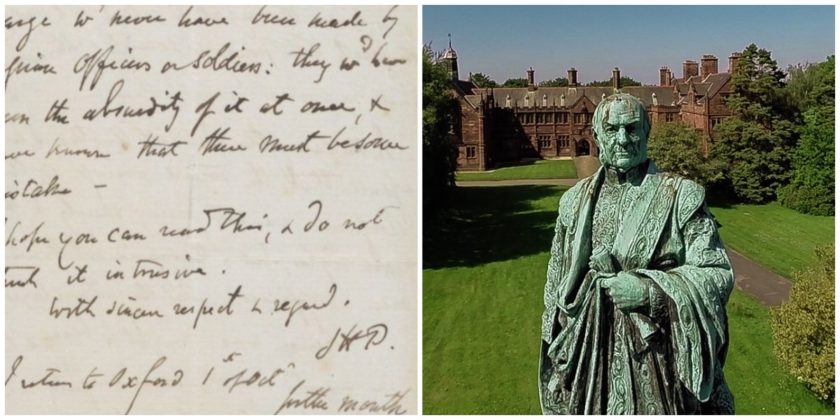 arge wd never have been made by
Officers or soldiers: they wd have
the absurdity of it at once, &
ve known that there must be some
istake –
hope you can read this, & do not
it intrusive.
With sincere respect & regard.
JHP.
I return to Oxford 1st of Octr
for the month